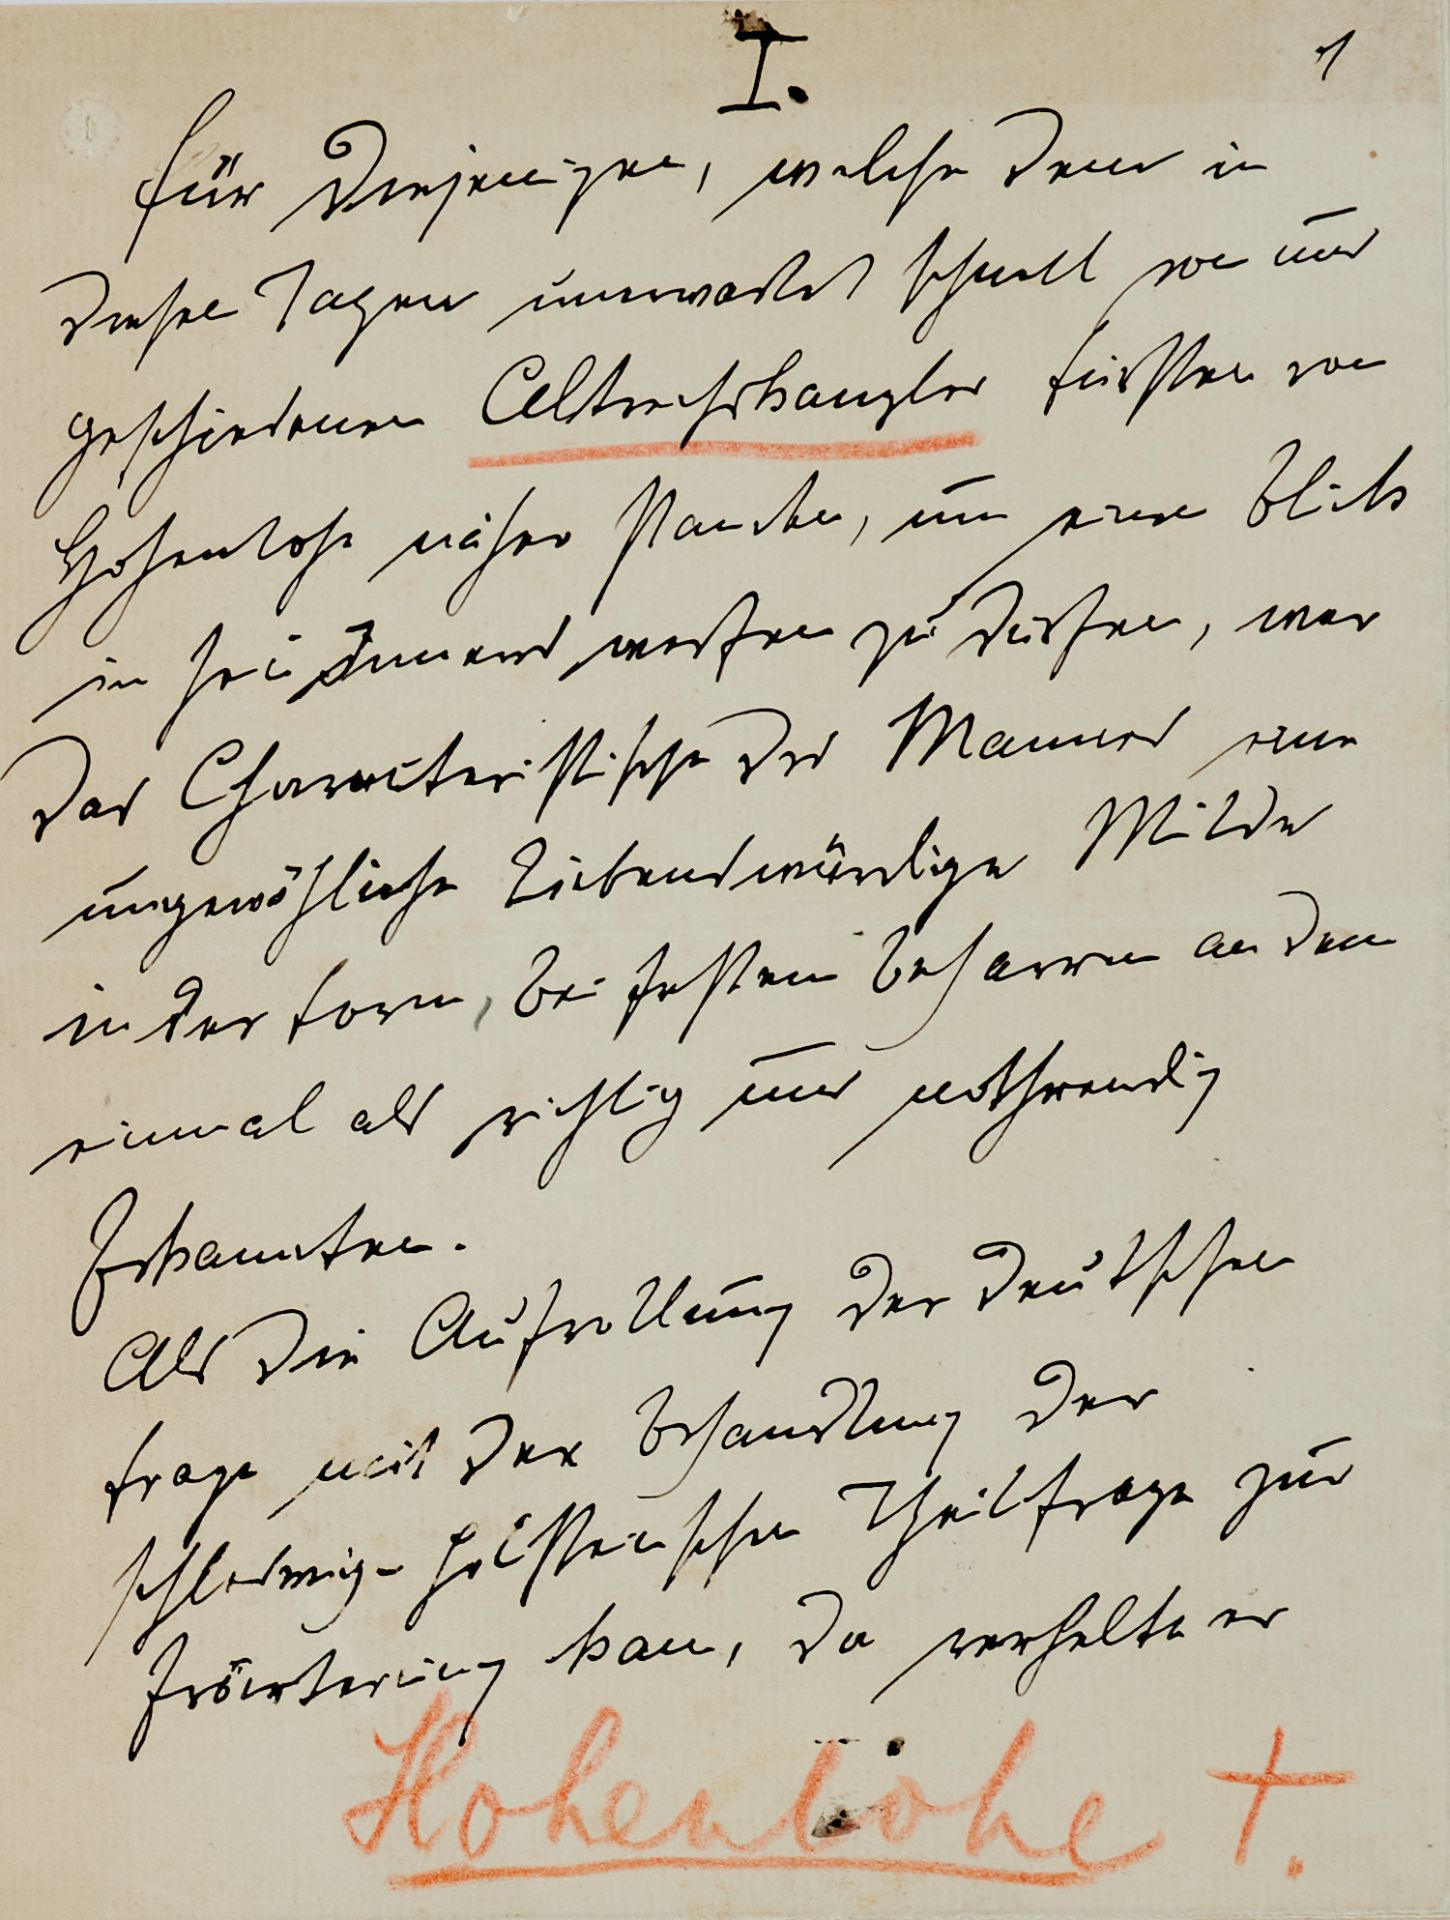 I.
1
Für Diejenigen, welche dem in
diesen Tagen unerwartet schnell von uns
geschiedenen Altreichskanzler Fürsten von
Hohenlohe näher standen, um einen Blick
in sein Inneres werfen zu dürfen, war
das Charakteristische des Mannes eine
ungewöhliche liebenswürdige Milde
in der Form, bei festem Beharren an dem
einmal als richtig und nothwendig
Erkannten.
Als die Aufrollung der deutschen
Frage mit der Behandlung der
schleswig-holsteinischen Theilfrage zur
Erörterung kam, da verhehlte er
Hohenlohe †.